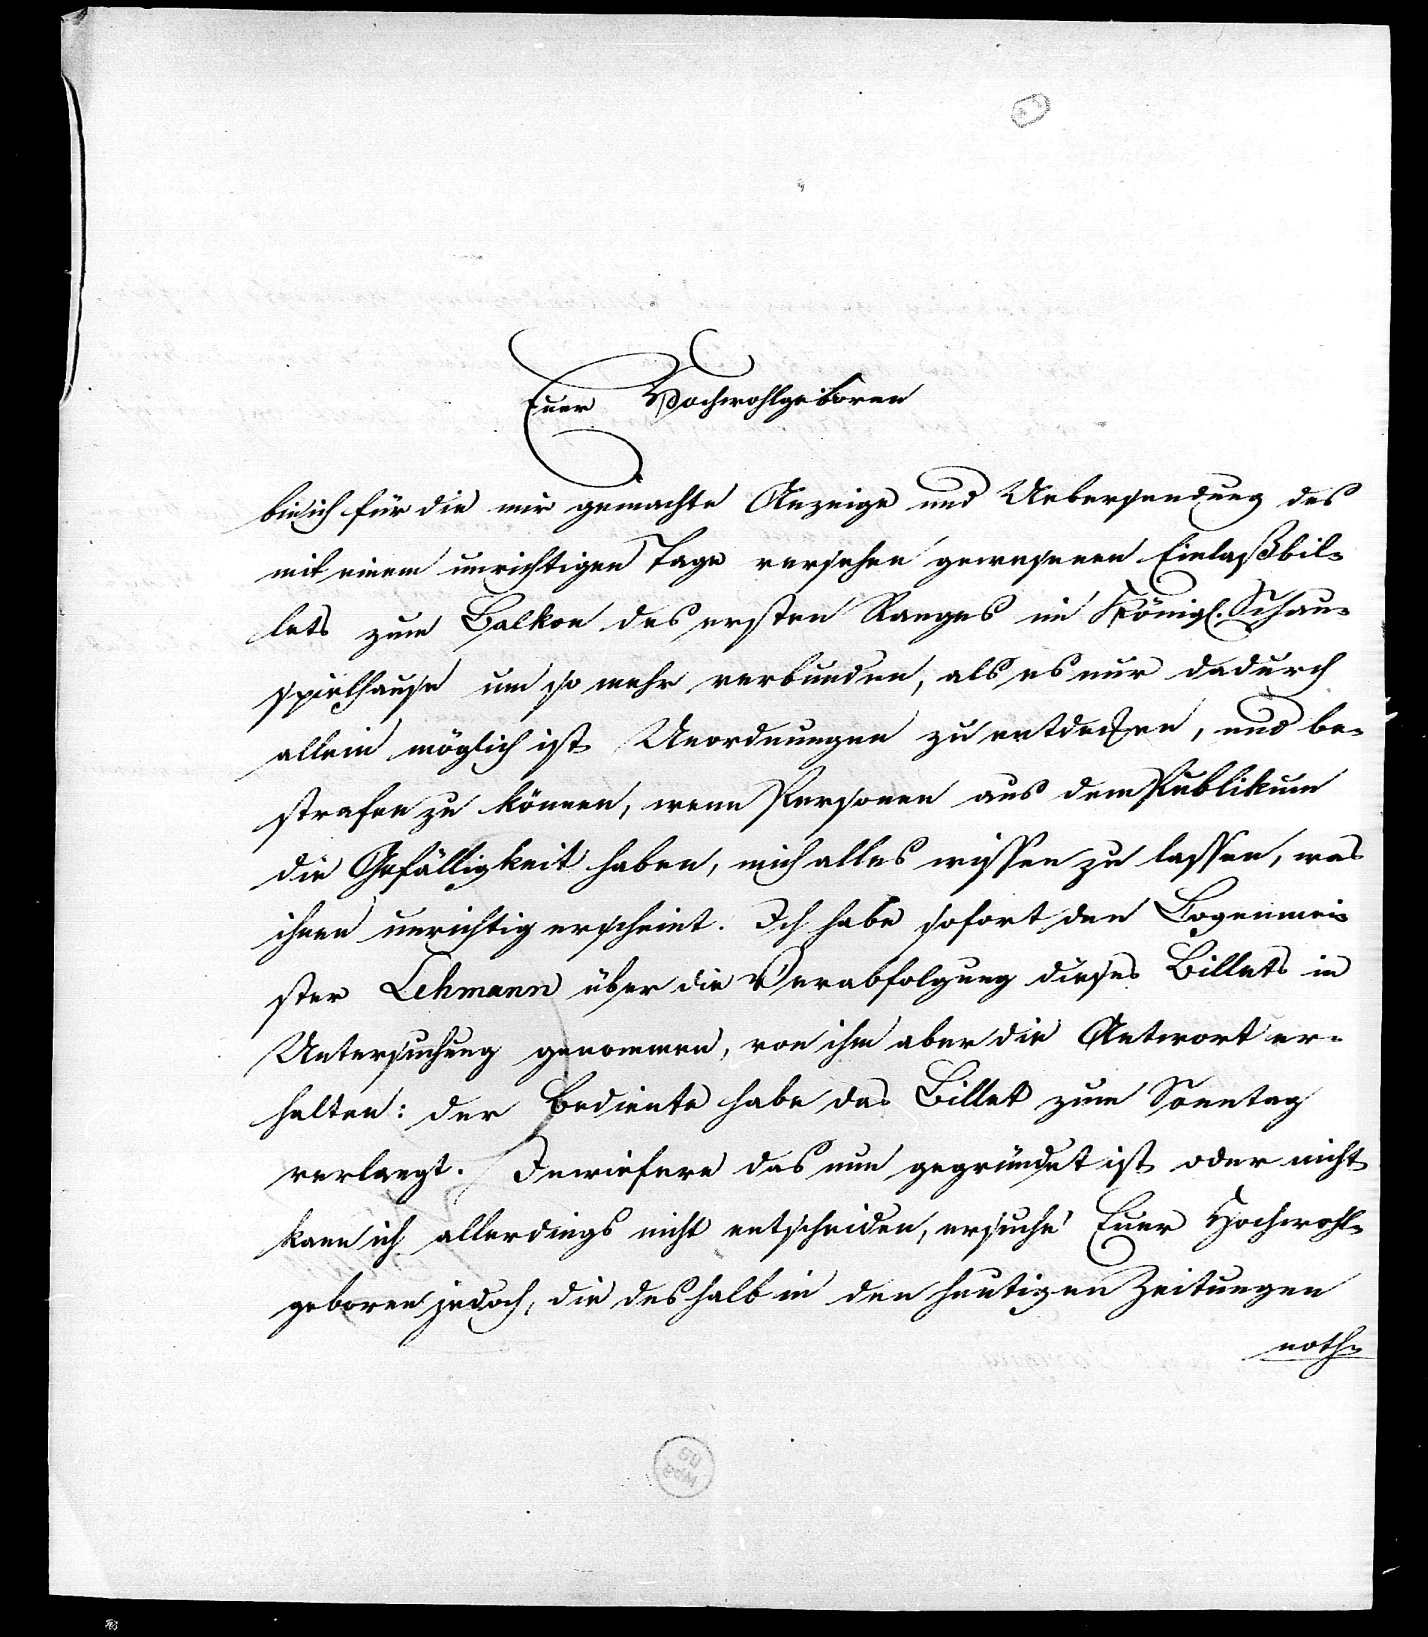 Euer Hochwohlgeboren
bin ich für die mir gemachte Anzeige und Uebersendung des
mit einem unrichtigen Tage versehen gewesenen Einlaßbil-
lets zum Balkon des ersten Ranges im Königl. Schau-
spielhause um so mehr verbunden, als es nur dadurch
allein möglich ist Unordnungen zu entdecken, und be-
strafen zu können, wenn Personen aus dem Publikum
die Gefälligkeit haben, mich alles wissen zu lassen, was
ihnen unrichtig erscheint. Ich habe sofort den Logenmei-
ster Lehmann über die Verabfolgung dieses Billets in
Untersuchung genommen, von ihm aber die Antwort er-
halten: der Bediente habe das Billet zum Sonntag
verlangt. Inwiefern das nun gegründet ist oder nicht
kann ich allerdings nicht entscheiden, ersuche Euer Hochwohl-
geboren jedoch, die deshalb in den heutigen Zeitungen
noth-